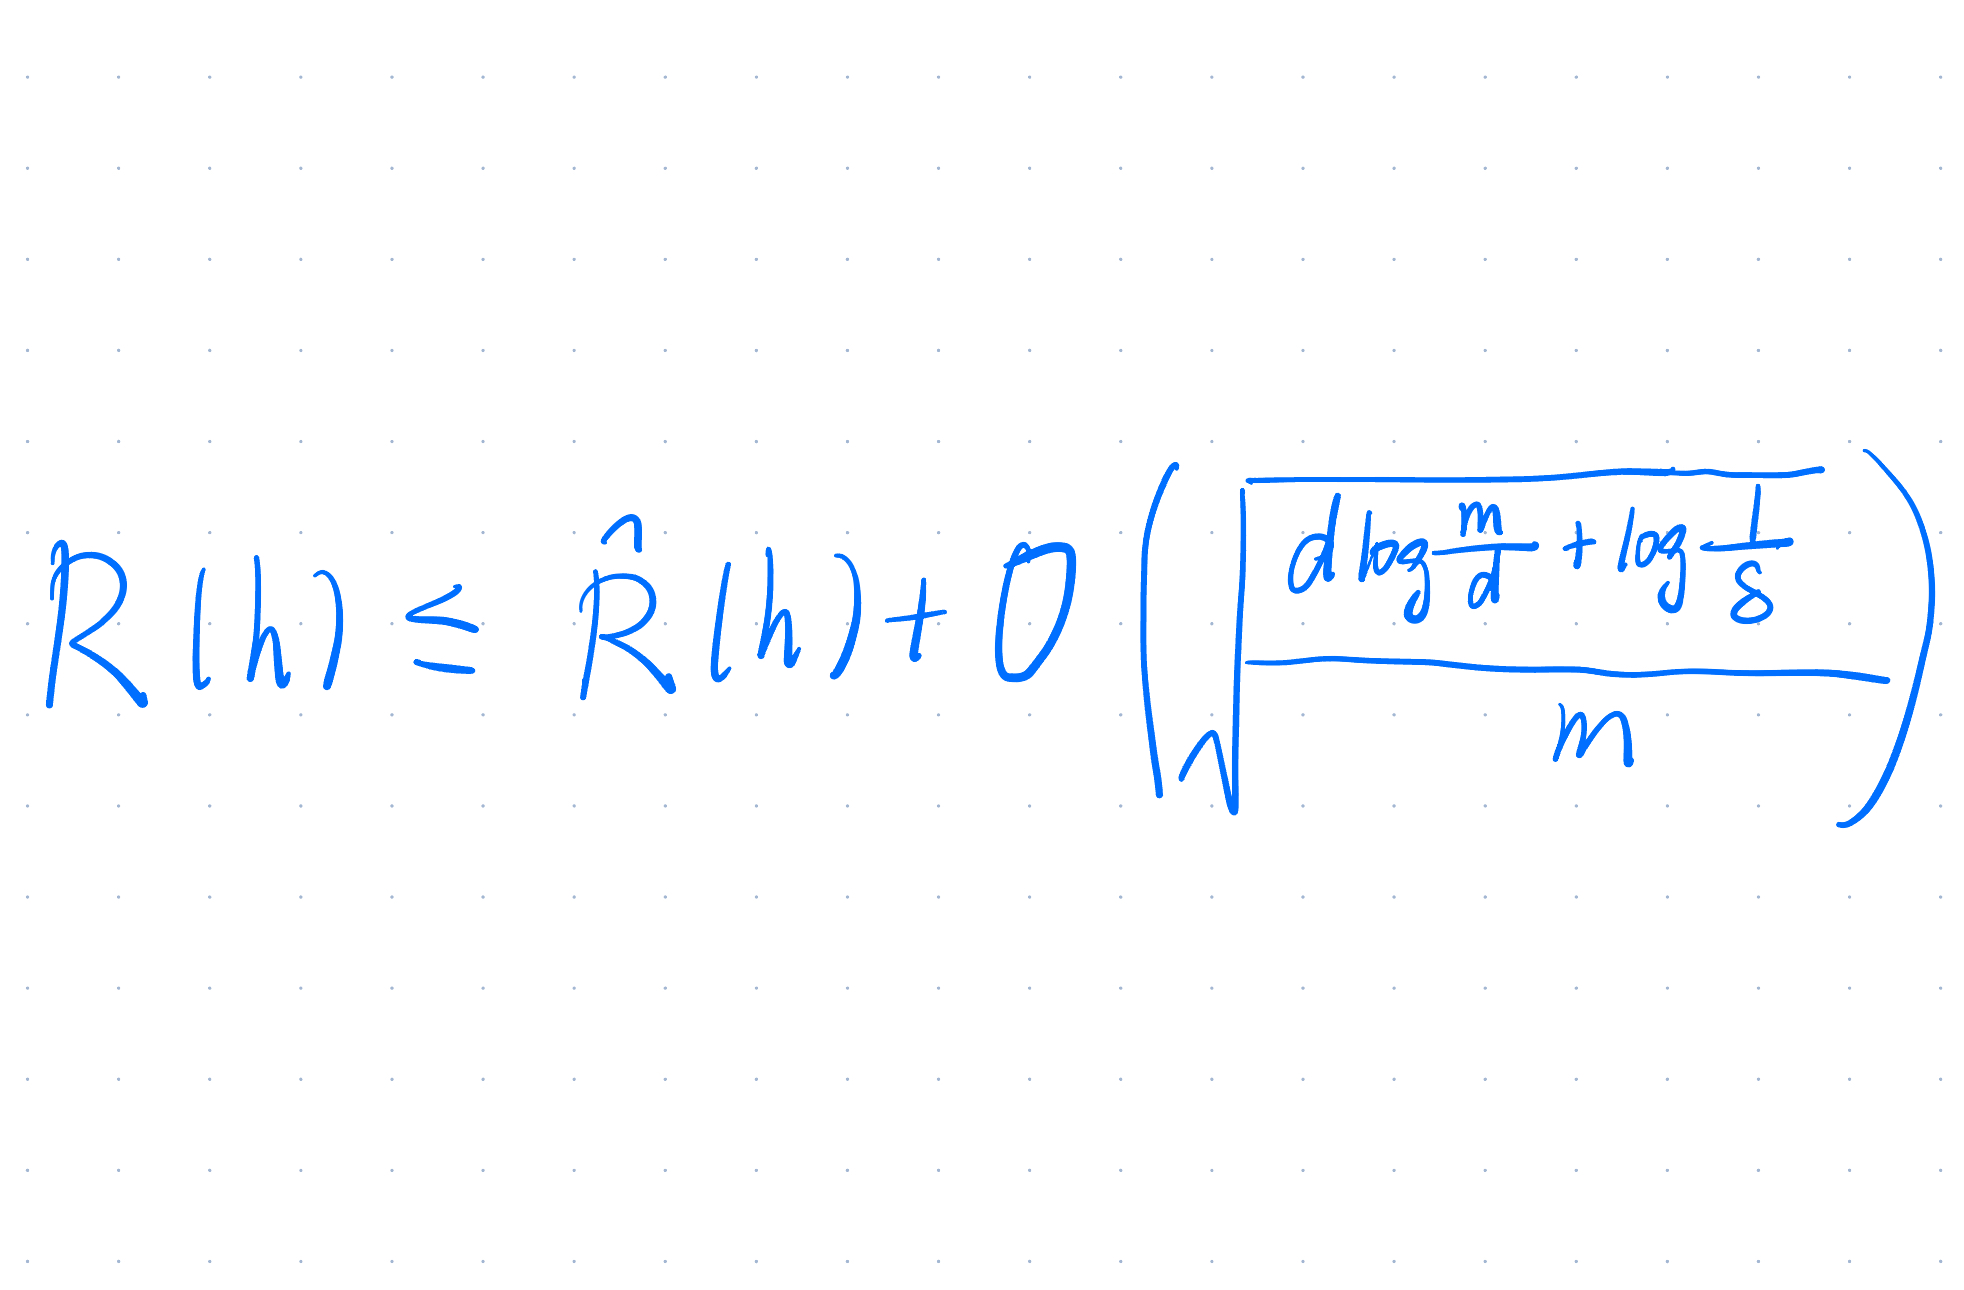 R(h) ≤ R̂(h) + O(√((d log(m/d) + log(1/δ))/m))